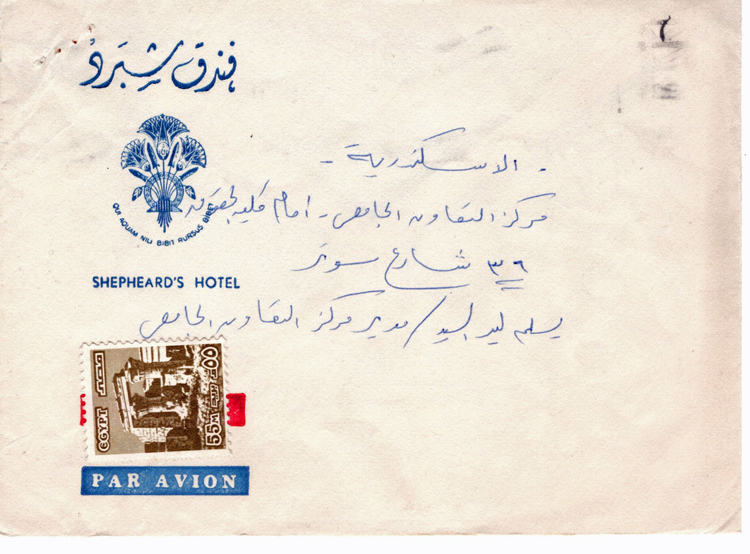 فندق شبرد
QUI AQUAM NILI BIBIT RURSUS BIBET
SHEPHEARD'S HOTEL
- الاسكندرية -
مركز التعاون الجامعى - امام كلية الحقوق
٣٦ شارع سوتر
يسلم ليد السيد / مدير مركز التعاون الجامعى
مصر
EGYPT
55M
PAR AVION